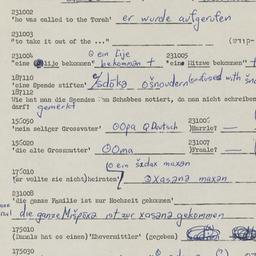 231002
'he was called to the Torah' er wurde aufgerufen
231003
"to take it out of the ..." (-קודש
231004 ① ein Lije 231005
"eine Alije bekommen" bekommen + "eine Hitzve bekommen"
187110
'eine Spende stiften' ośnoudern (confused with
187112
Wie hat man die Spenden am Schabbes notiert, da man nicht schreiben
darf? gemerkt
195050 231006
'mein seliger Grossvater' ①Opa ② Deutsch )Harrle? —
195020 231007
'die alte Grossmutter' ①Oma )Fraale? —
① ein šadax maxən
175010
'(er wollte sie nicht)heiraten' ② xasənə maxən
231008
'die ganze Familie ist zur Hochzeit gekommen'
die ganze Mišpoxə ist zur xasənə gekommen
175010
(Damals hat es einen)'Ehevermittler' (gegeben)
175030